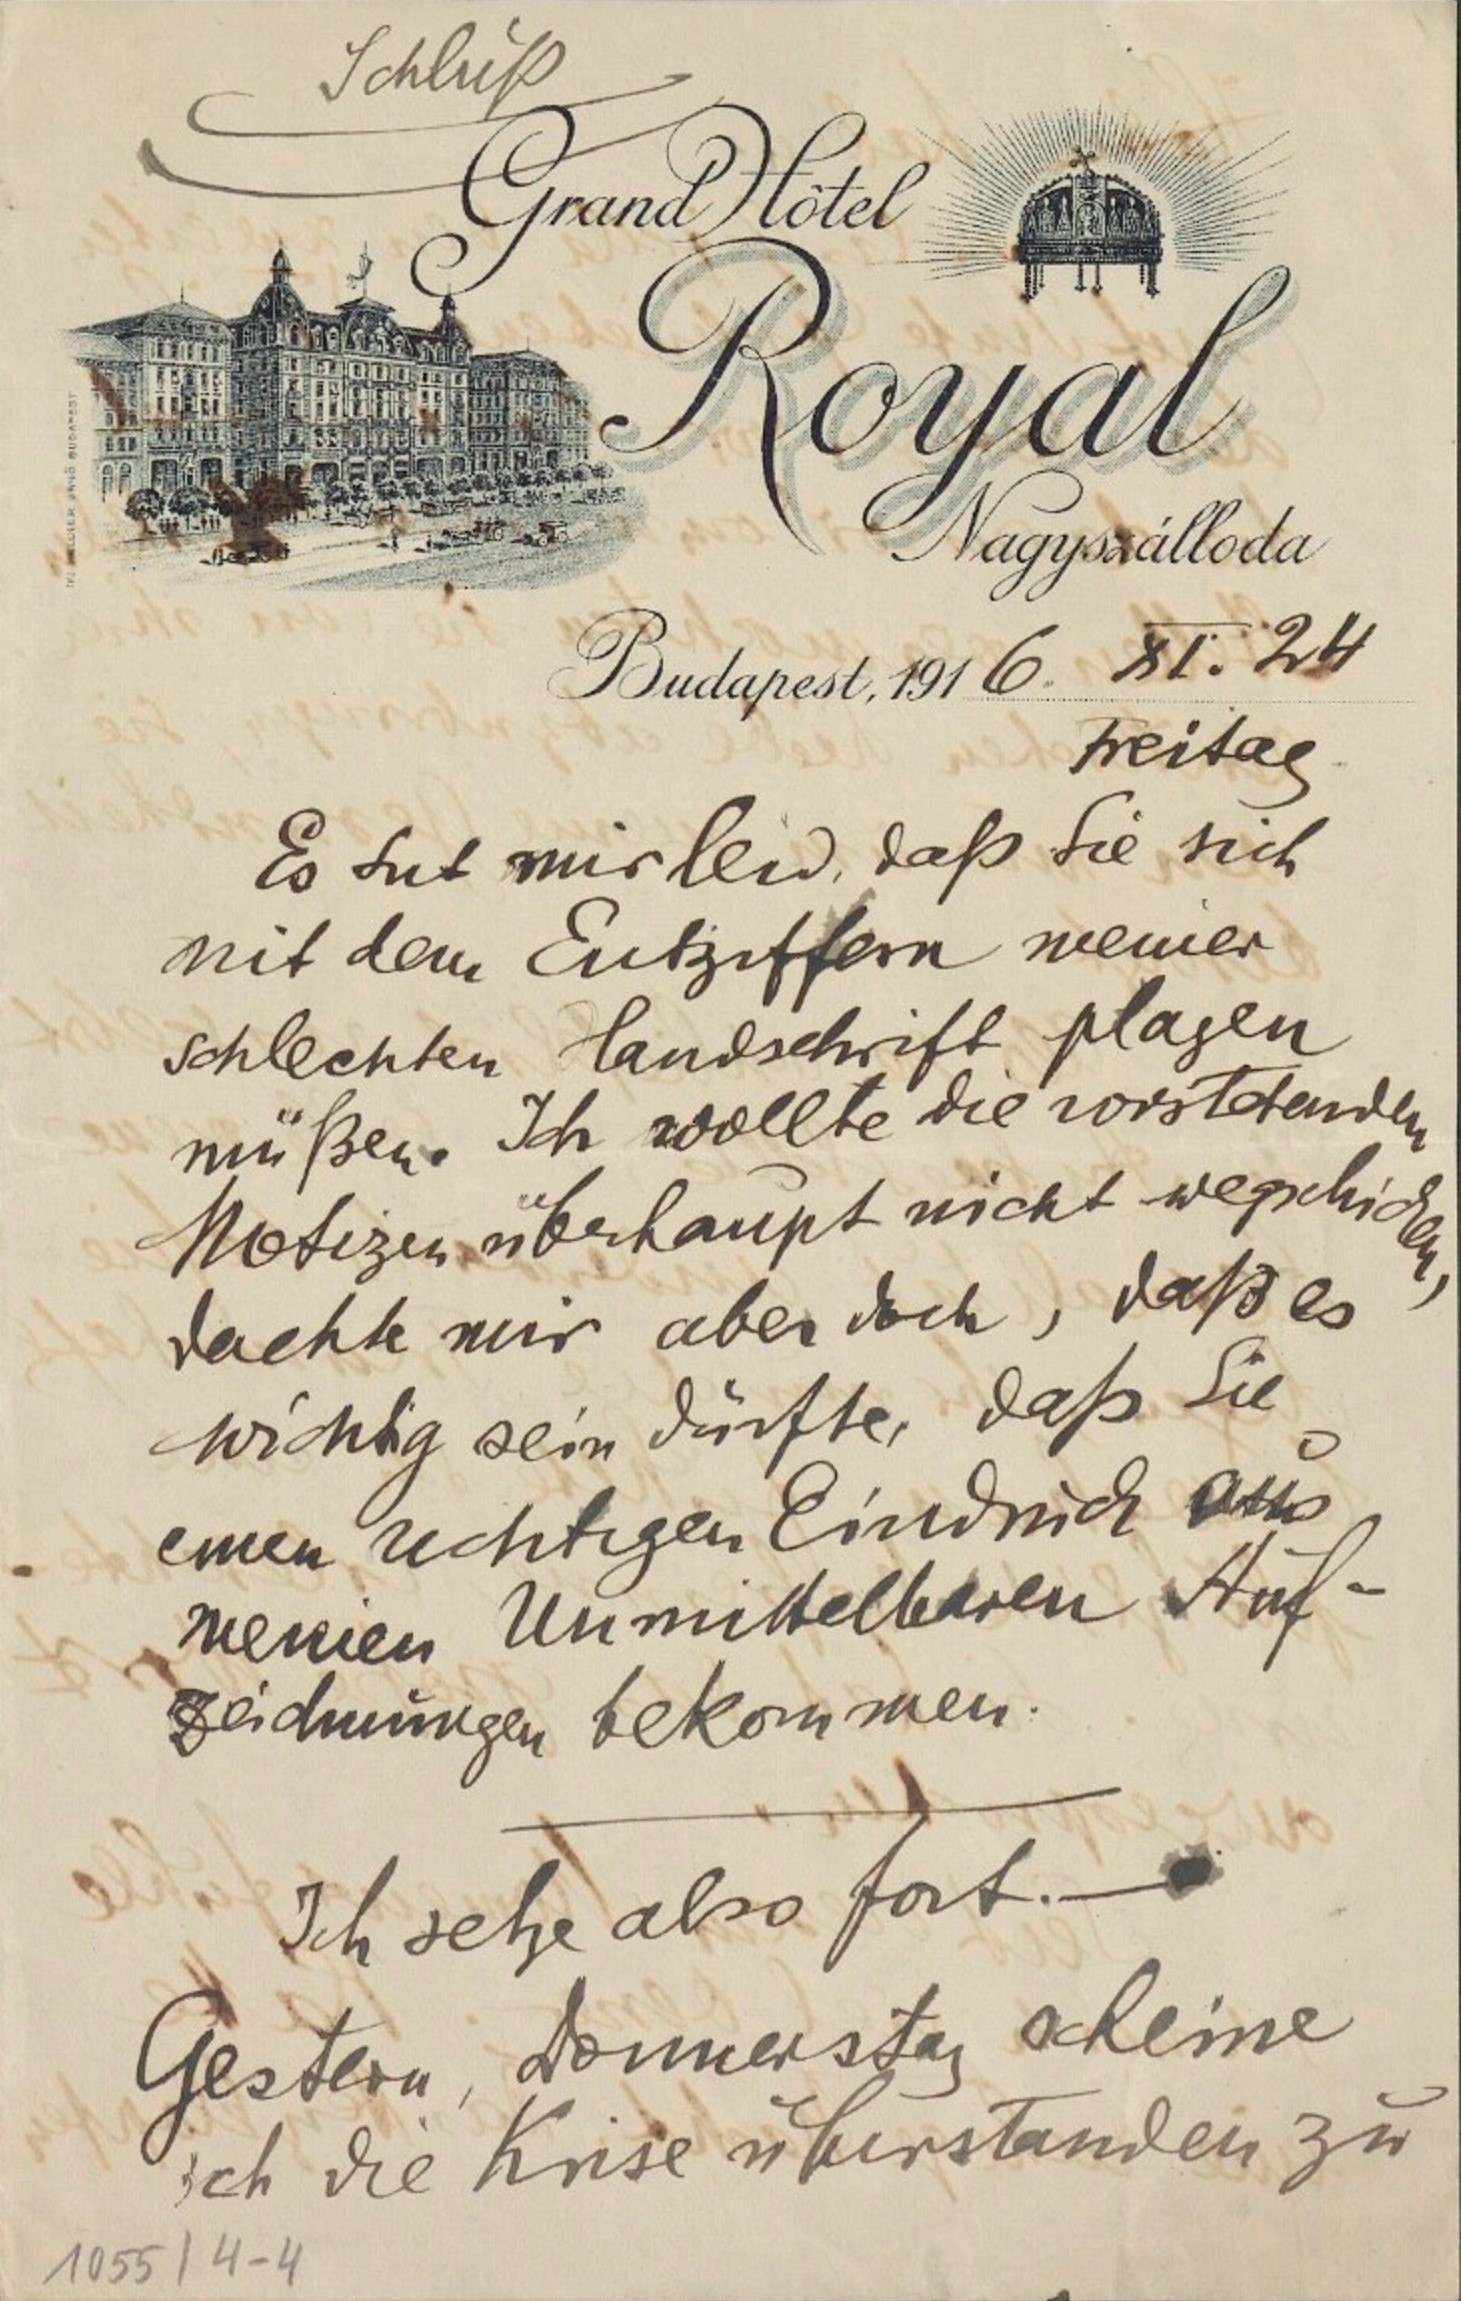 Schluß
Grand Hôtel
Royal
Nagyszálloda
Budapest, 1916. XI. 24
Freitag
Es tut mir leid, daß Sie sich
mit dem Entziffern meiner
schlechten Handschrift plagen
müßen. Ich wollte die vorstehenden
Notizen überhaupt nicht wegschicken,
dachte mir aber doch, daß es
wichtig sein dürfte, daß Sie
einen richtigen Eindruck aus
meinen Unmittelbaren Auf-
zeichnungen bekommen.
Ich setze also fort.—
Gestern, Donnerstag scheine
ich die Krise überstanden zu
1055/4-4